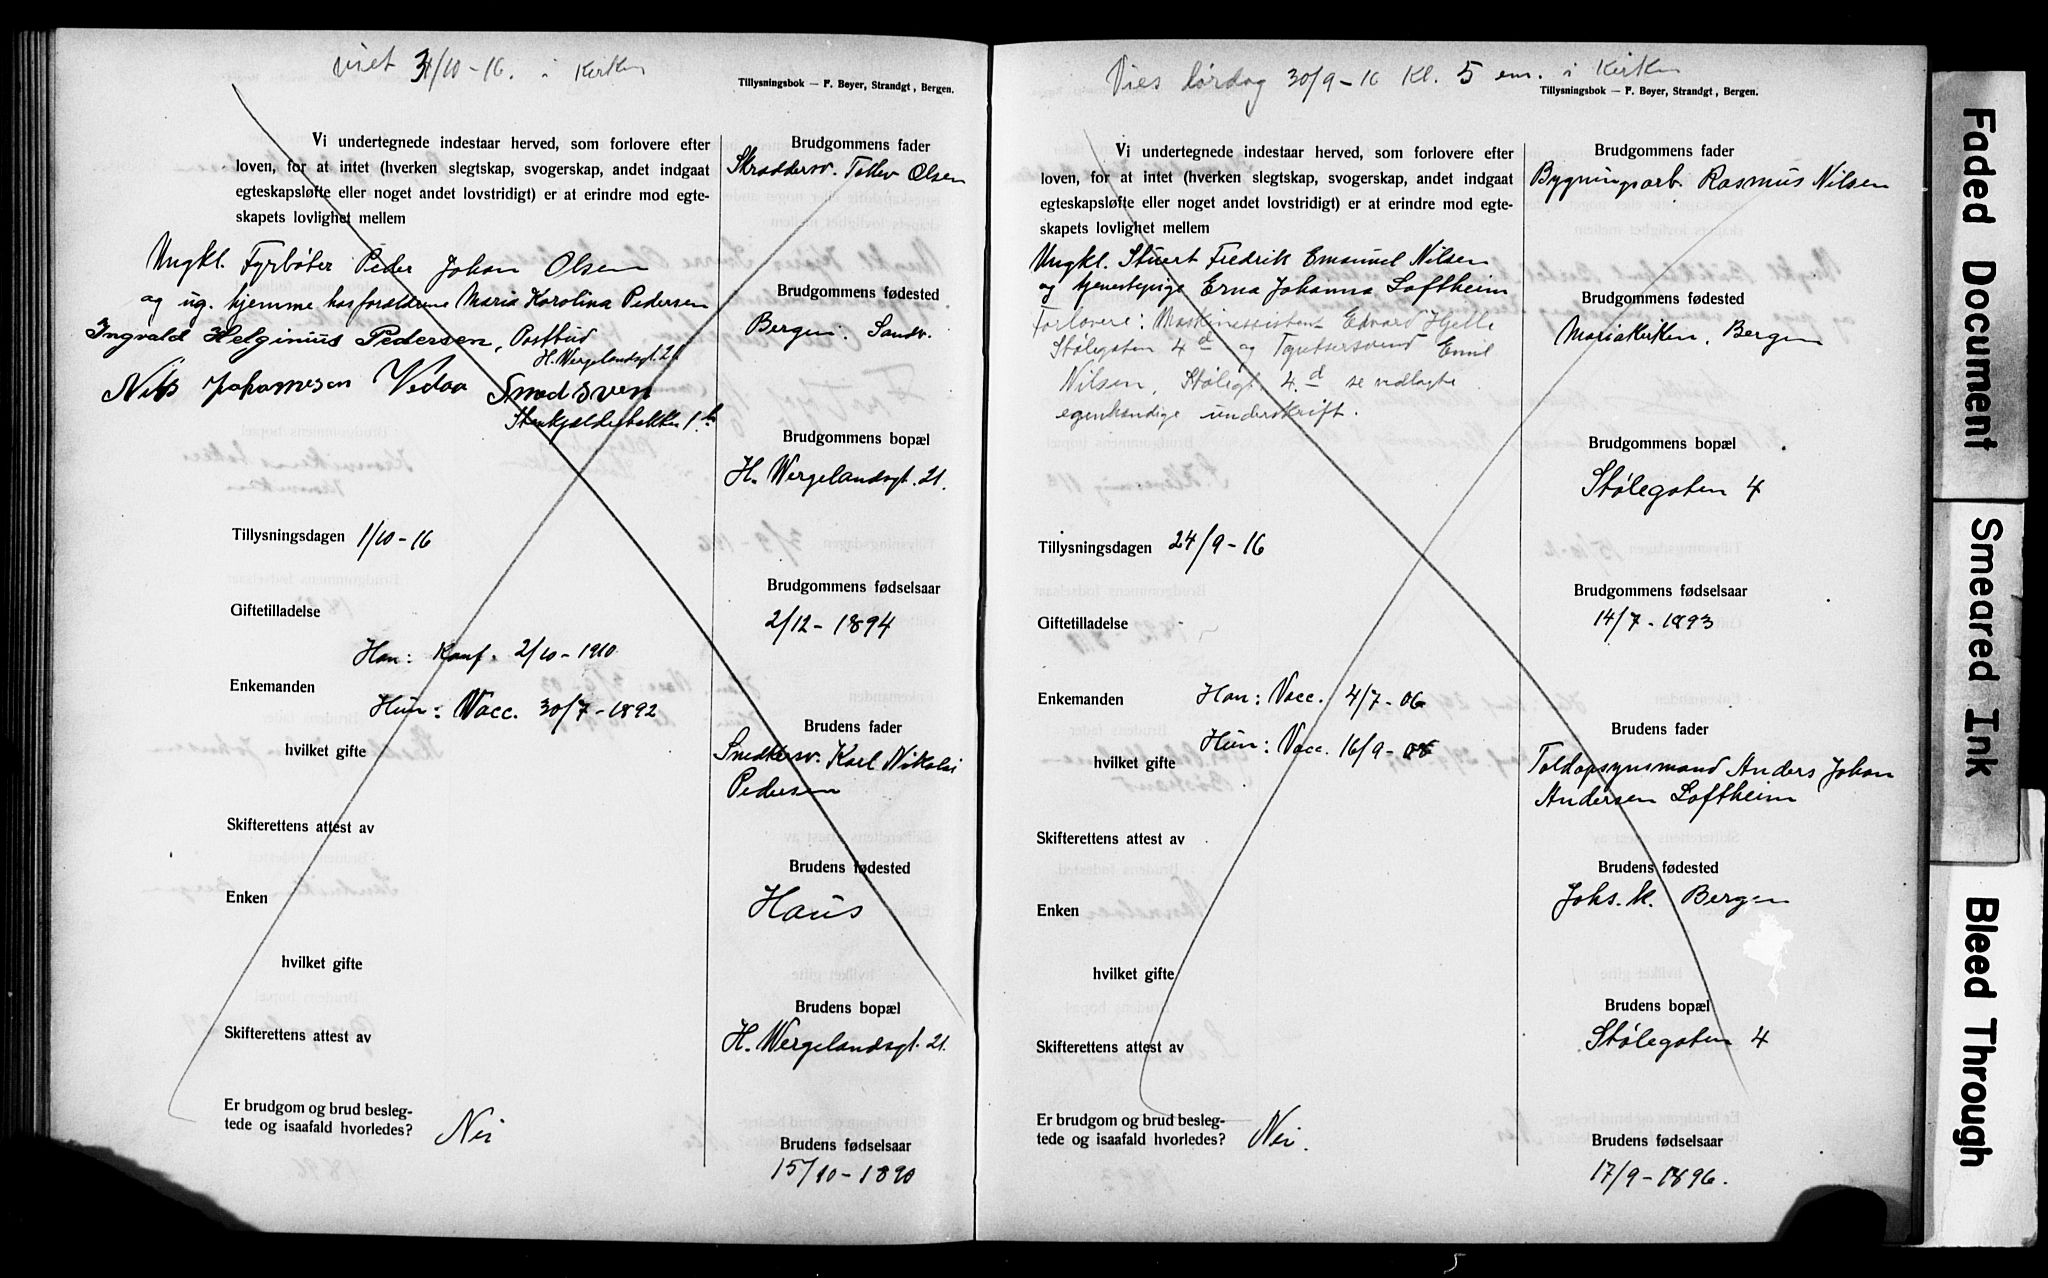 viet 3/10-16. i Kirken
Tillysningsbok — F. Beyer, Strandgt, Bergen.
Vi undertegnede indestaar herved, som forlovere efter
loven, for at intet (hverken slegtskap, svogerskap, andet indgaat
egteskapsløfte eller noget andet lovstridigt) er at erindre mod egte-
skapets lovlighet mellem
Ungkl. Fyrbøter Peder Johan Olsen
og ug. hjemme hos forældrene Maria Karolina Pedersen
Ingvald Helginius Pedersen, Postbud
H. Wergelandsgt. 21
Nils Johannesen Vedaa Smedsven
Stenkjelderbakken 1 b
Tillysningsdagen 1/10-16
Giftetilladelse
Han: Konf. 2/10-1910
Enkemanden
Hun: Vacc. 30/7-1892
hvilket gifte
Skifterettens attest av
Enken
hvilket gifte
Skifterettens attest av
Er brudgom og brud besleg-
tede og isaafald hvorledes? Nei
Brudgommens fader
Skræddersv. Tollev Olsen
Brudgommens fødested
Bergen. Sandv.
Brudgommens bopæl
H. Wergelandsgt. 21.
Brudgommens fødselsaar
2/12-1894
Brudens fader
Snedkersv. Karl Nikolai
Pedersen
Brudens fødested
Haus
Brudens bopæl
H. Wergelandsgt. 21.
Brudens fødselsaar
15/10-1890
Vies lørdag 30/9-16 Kl. 5 em. i Kirken
Tillysningsbok — F. Beyer, Strandgt, Bergen.
Vi undertegnede indestaar herved, som forlovere efter
loven, for at intet (hverken slegtskap, svogerskap, andet indgaat
egteskapsløfte eller noget andet lovstridigt) er at erindre mod egte-
skapets lovlighet mellem
Ungkl. Stuert Fredrik Emanuel Nilsen
og tjenestepige Erna Johanna Loftheim
Forlovere: Maskinassistent Edvard Hjelle
Stølegaten 4 d og Tapetsersvend Emil
Nilsen, Stølegt. 4 d se vedlagte
egenhændige underskrift.
Tillysningsdagen 24/9-16
Giftetilladelse
Enkemanden Han: Vacc. 4/7-06
Hun: Vacc. 16/9-08
hvilket gifte
Skifterettens attest av
Enken
hvilket gifte
Skifterettens attest av
Er brudgom og brud besleg-
tede og isaafald hvorledes? Nei.
Brudgommens fader
Bygningsarb. Rasmus Nilsen
Brudgommens fødested
Mariakirken, Bergen
Brudgommens bopæl
Stølegaten 4
Brudgommens fødselsaar
14/7-1893
Brudens fader
Toldopsynsmand Anders Johan
Andersen Loftheim
Brudens fødested
Johs. k. Bergen
Brudens bopæl
Stølegaten 4
Brudens fødselsaar
17/9-1896.
5
Faded Document
Smeared Ink
Bleed Through